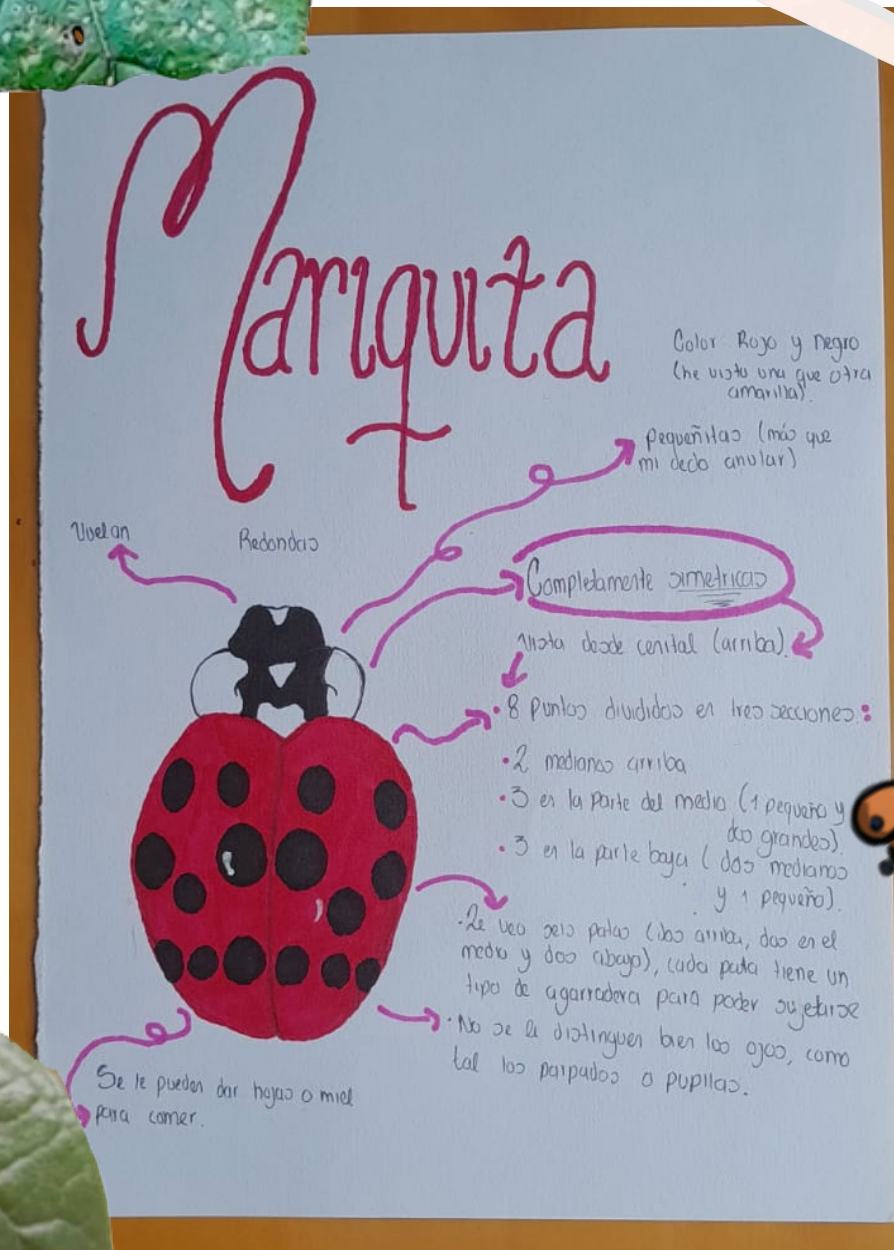 Mariquita
Color Rojo y negro
(he visto una que otra
amarilla).
pequeñitas (más que
mi dedo anular)
Vuelan
Redondas
Completamente simetricas
Vista desde cenital (arriba).
• 8 puntos divididos en tres secciones:
• 2 medianos arriba
• 3 en la parte del medio (1 pequeño y
dos grandes).
• 3 en la parte baja (dos medianos
y 1 pequeño).
• Le veo seis patas (dos arriba, dos en el
medio y dos abajo), cada pata tiene un
tipo de agarradera para poder sujetarse
• No se le distinguen bien los ojos, como
tal los parpados o pupilas.
Se le pueden dar hojas o miel
para comer.